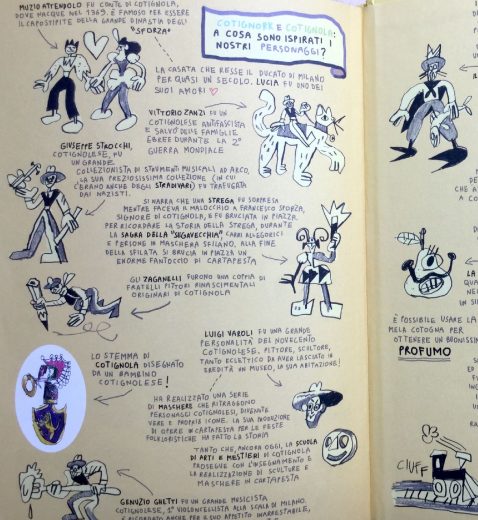 MUZIO ATTENDOLO FU CONTE DI COTIGNOLA,
DOVE NACQUE NEL 1369. È FAMOSO PER ESSERE
IL CAPOSTIPITE DELLA GRANDE DINASTIA DEGLI
"SFORZA"
COTIGNORK E COTIGNOLA:
A COSA SONO ISPIRATI I
NOSTRI PERSONAGGI?
LA CASATA CHE RESSE IL DUCATO DI MILANO
PER QUASI UN SECOLO. LUCIA FU UNO DEI
SUOI AMORI
VITTORIO ZANZI FU UN
COTIGNOLESE ANTIFASCISTA
E SALVÒ DELLE FAMIGLIE
EBREE DURANTE LA 2°
GUERRA MONDIALE
GIUSEPPE STROCCHI,
COTIGNOLESE, FU
UN GRANDE
COLLEZIONISTA DI STRUMENTI MUSICALI AD ARCO,
LA SUA PREZIOSISSIMA COLLEZIONE (IN CUI
C'ERANO ANCHE DEGLI STRADIVARI) FU TRAFUGATA
DAI NAZISTI.
SI NARRA CHE UNA STREGA FU SORPRESA
MENTRE FACEVA IL MALOCCHIO A FRANCESCO SFORZA,
SIGNORE DI COTIGNOLA, E FU BRUCIATA IN PIAZZA.
PER RICORDARE LA STORIA DELLA STREGA, DURANTE
LA SAGRA DELLA "SEGAVECCHIA" CARRI ALLEGORICI
E PERSONE IN MASCHERA SFILANO. ALLA FINE
DELLA SFILATA SI BRUCIA IN PIAZZA UN
ENORME FANTOCCIO DI CARTAPESTA
GLI ZAGANELLI FURONO UNA COPPIA DI
FRATELLI PITTORI RINASCIMENTALI
ORIGINARI DI COTIGNOLA
LUIGI VAROLI FU UNA GRANDE
PERSONALITÀ DEL NOVECENTO
COTIGNOLESE. PITTORE, SCULTORE,
TANTO ECLETTICO DA AVER LASCIATO IN
EREDITÀ UN MUSEO, LA SUA ABITAZIONE!
LO STEMMA DI
COTIGNOLA DISEGNATO
DA UN BAMBINO
COTIGNOLESE!
HA REALIZZATO UNA SERIE
DI MASCHERE CHE RITRAGGONO
PERSONAGGI COTIGNOLESI, DIVENUTE
VERE E PROPRIE ICONE. LA SUA
DI OPERE IN CARTAPESTA PER LE FESTE
FOLKLORISTICHE HA FATTO LA STORIA
TANTO CHE, ANCORA OGGI, LA SCUOLA
DI ARTI E MESTIERI DI COTIGNOLA
PROSEGUE CON L'INSEGNAMENTO E
LA REALIZZAZIONE DI SCULTURE E
MASCHERE IN CARTAPESTA
GENUZIO GHETTI FU UN GRANDE MUSICISTA
COTIGNOLESE, 1° VIOLONCELLISTA ALLA SCALA DI MILANO.
È RICORDATO ANCHE PER IL SUO APPETITO INARRESTABILE,
È POSSIBILE USARE LA
MELA COTOGNA PER
OTTENERE UN BUONISSIMO
PROFUMO
CIUFF